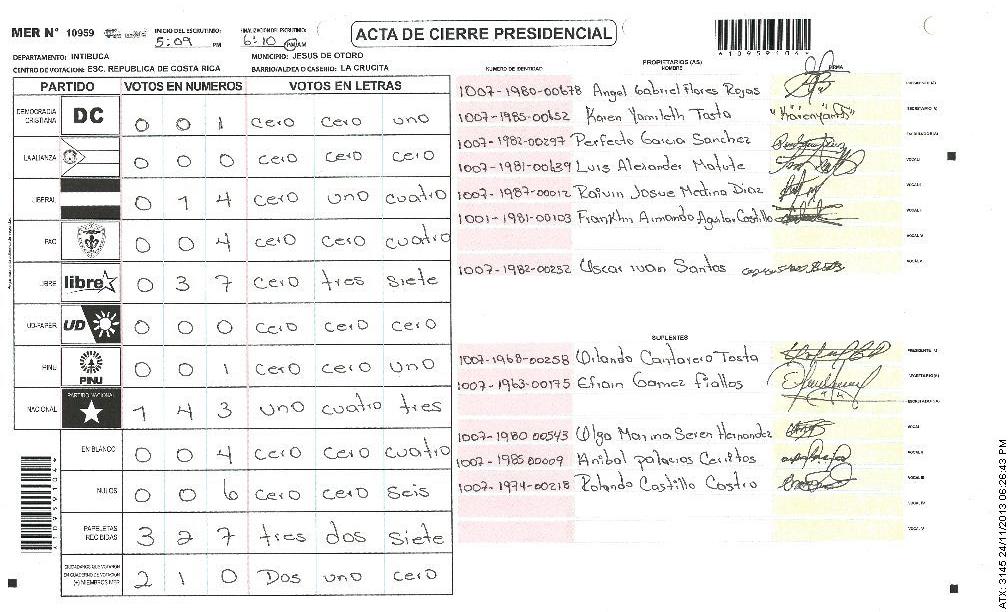 MER N° 10959 INICIO DEL ESCRUTINIO: 5:09 PM FINALIZACION DEL ESCRUTINIO: 6:10 PM/AM
ACTA DE CIERRE PRESIDENCIAL
*10959104*
DEPARTAMENTO: INTIBUCA MUNICIPIO: JESUS DE OTORO
CENTRO DE VOTACION: ESC. REPUBLICA DE COSTA RICA BARRIO/ALDEA O CASERIO: LA CRUCITA
PARTIDO VOTOS EN NUMEROS VOTOS EN LETRAS
DEMOCRACIA CRISTIANA DC 0 0 1 cero cero uno
LA ALIANZA 0 0 0 cero cero cero
LIBERAL 0 1 4 cero uno cuatro
PAC 0 0 4 cero cero cuatro
LIBRE libre 0 3 7 cero tres siete
UD-FAPER UD 0 0 0 cero cero cero
PINU PINU 0 0 1 cero cero uno
NACIONAL PARTIDO NACIONAL 1 4 3 uno cuatro tres
EN BLANCO 0 0 4 cero cero cuatro
NULOS 0 0 6 cero cero seis
PAPELETAS RECIBIDAS 3 2 7 tres dos siete
CIUDADANOS QUE VOTARON EN CUADERNO DE VOTACION (+) MIEMBROS MER 2 1 0 Dos uno cero
PROPIETARIOS (AS)
NUMERO DE IDENTIDAD NOMBRE FIRMA
1007-1980-00678 Angel Gabriel Flores Rojas PRESIDENTE (A)
1007-1985-00652 Karen Yamileth Tosta SECRETARIO (A)
1007-1982-00297 Perfecto Garcia Sanchez
1007-1981-00639 Luis Alexander Matute VOCAL I
1007-1987-00012 Raivin Josue Medina Diaz VOCAL II
1001-1981-00103 Franklin Armando Aguilar Castillo
VOCAL IV
1007-1982-00252 Oscar ivan Santos VOCAL V
SUPLENTES
1007-1968-00258 Orlando Cantarero Tosta PRESIDENTE (A)
1007-1963-00175 Efrain Gomez Fiallos SECRETARIO (A)
ESCRUTADOR (A)
1007-1980 00543 Olga Marina Seren Hernandez VOCAL I
1007-1985 00009 Anibal palacios Cerritos VOCAL II
1007-1974-00218 Rolando Castillo Castro VOCAL III
VOCAL IV
VOCAL V
ATX: 3145 24/11/2013 06:26:43 PM